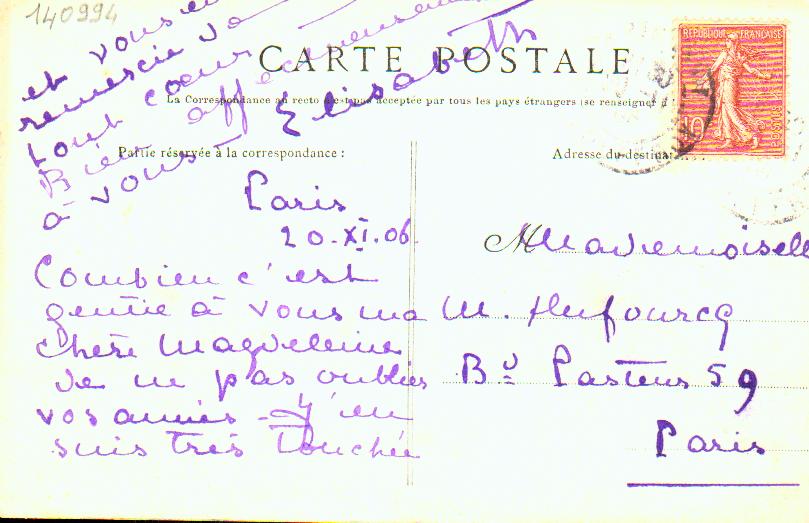 140994
CARTE POSTALE
La Correspondance au recto n'est pas acceptée par tous les pays étrangers (se renseigner à
Partie réservée à la correspondance :
Adresse du destinat
RÉPUBLIQUE FRANÇAISE
POSTES
10
Paris
20.XI.06.
Combien c'est
gentil à vous ma
chère Magdeleine
de ne pas oublier
vos amies. J'en
suis très touchée
et vous en
remercie de
tout coeur
Bien affectueusement
à vous
Elisabeth
Mademoiselle
M. Hufourcq
Bd Pasteur 59
Paris